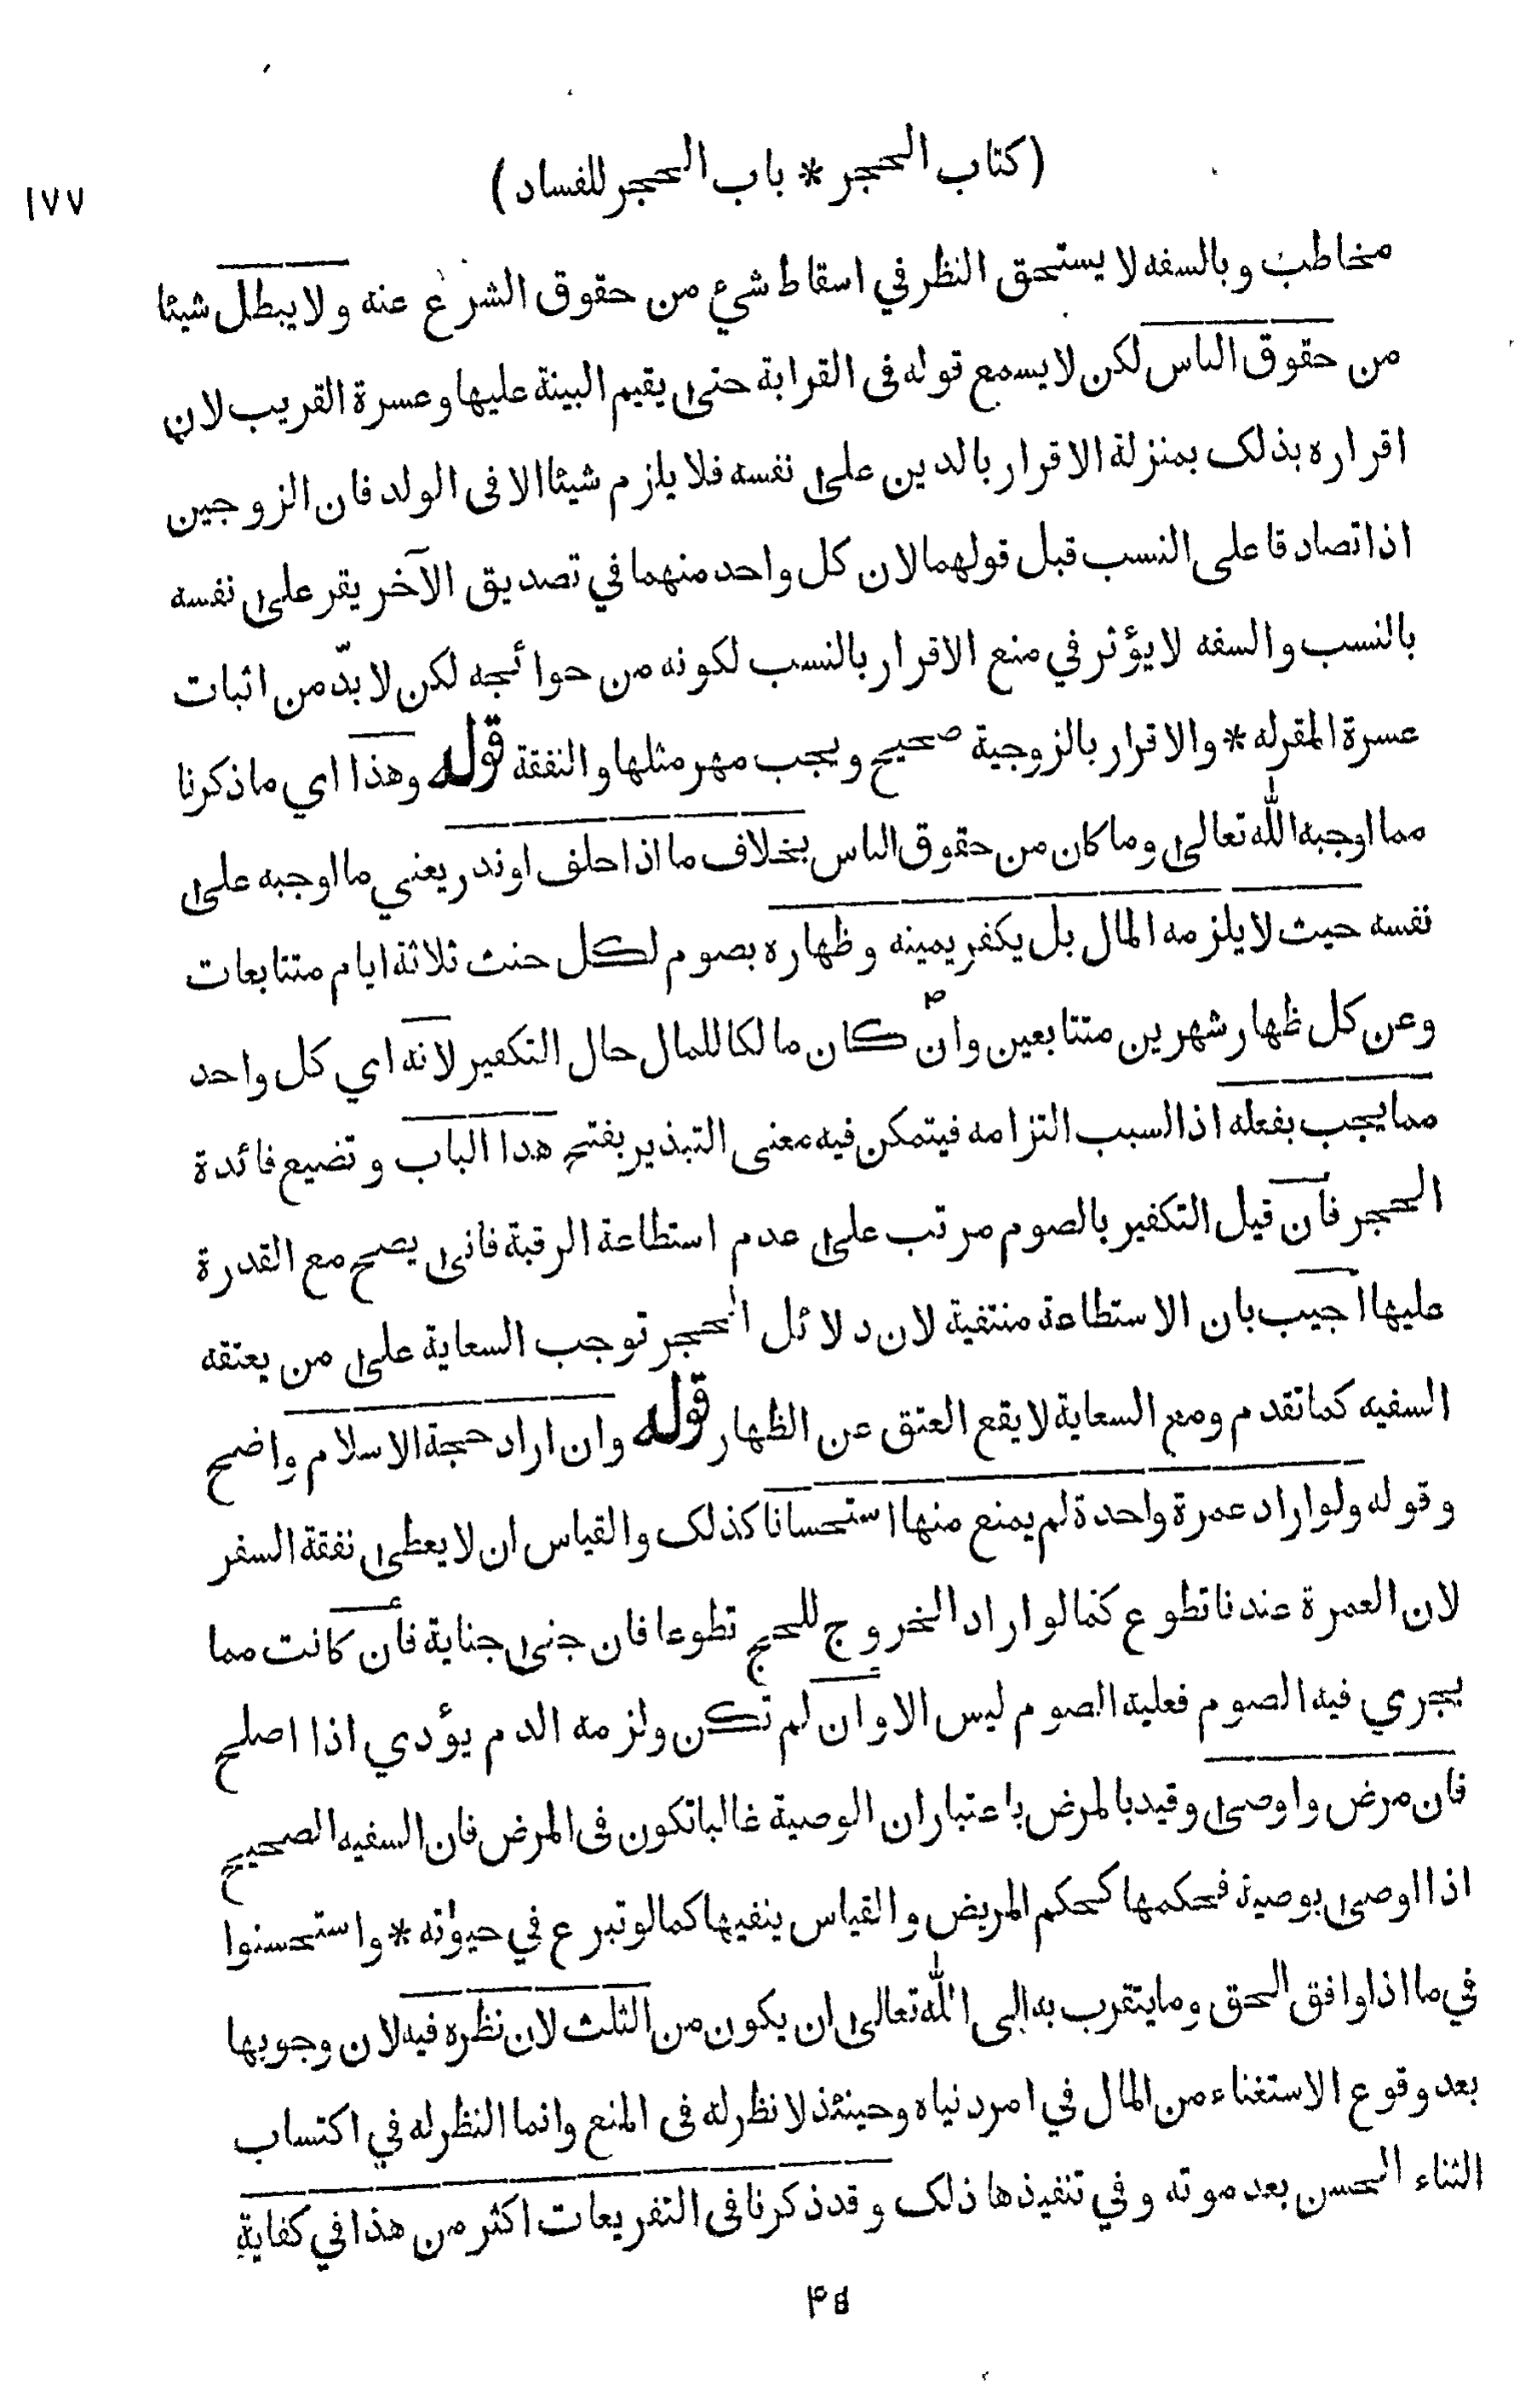 (كتاب الحجر * باب الحجر للفساد)
١٧٧
مخاطب وبالسفه لا يستحق النظر في اسقاط شيء من حقوق الشرع عنه ولا يبطل شيئا
من حقوق الناس لكن لا يسمع قوله في القرابة حتى يقيم البينة عليها وعسرة القريب لان
اقراره بذلك بمنزلة الاقرار بالدين على نفسه فلا يلزم شيئا الا في الولد فان الزوجين
اذا تصادقا على النسب قبل قولهما لان كل واحد منهما في تصديق الآخر يقر على نفسه
بالنسب والسفه لا يؤثر في منع الاقرار بالنسب لكونه من حوائجه لكن لا بدّ من اثبات
عسرة المقر له * والاقرار بالزوجية صحيح ويجب مهر مثلها والنفقة قوله وهذا اي ما ذكرنا
مما اوجبه الله تعالى وما كان من حقوق الناس بخلاف ما اذا حلف او ندر يعني ما اوجبه على
نفسه حيث لا يلزمه المال بل يكفر يمينه وظهاره بصوم لكل حنث ثلاثة ايام متتابعات
وعن كل ظهار شهرين متتابعين وان كان مالكا للمال حال التكفير لانه اي كل واحد
مما يجب بفعله اذ السبب التزامه فيتمكن فيه معنى التبذير بفتح هدا الباب وتضيع فائدة
الحجر فان قيل التكفير بالصوم مرتب على عدم استطاعة الرقبة فانى يصح مع القدرة
عليها اجيب بان الاستطاعة منتفية لان دلائل الحجر توجب السعاية على من يعتقه
السفيه كما تقدم ومع السعاية لا يقع العتق عن الظهار قوله وان اراد حجة الاسلام واضح
وقوله ولو اراد عمرة واحدة لم يمنع منها استحسانا كذلك والقياس ان لا يعطى نفقة السفر
لان العمرة عندنا تطوع كما لو اراد الخروج للحج تطوعا فان جنى جناية فان كانت مما
يجري فيه الصوم فعليه الصوم ليس الا وان لم تكن ولزمه الدم يؤدي اذا اصلح
فان مرض واوصى وقيد بالمرض باعتبار ان الوصية غالبا تكون في المرض فان السفيه الصحيح
اذا اوصى بوصية فحكمها كحكم المريض والقياس ينفيها كما لو تبرع في حيوته * واستحسنوا
في ما اذا وافق الحق وما يتقرب به الى الله تعالى ان يكون من الثلث لان نظره فيه لان وجوبها
بعد وقوع الاستغناء من المال في امر دنياه وحينئذ لا نظر له في المنع وانما النظر له في اكتساب
الثناء الحسن بعد موته وفي تنفيذها ذلك وقد ذكرنا في التفريعات اكثر من هذا في كفاية